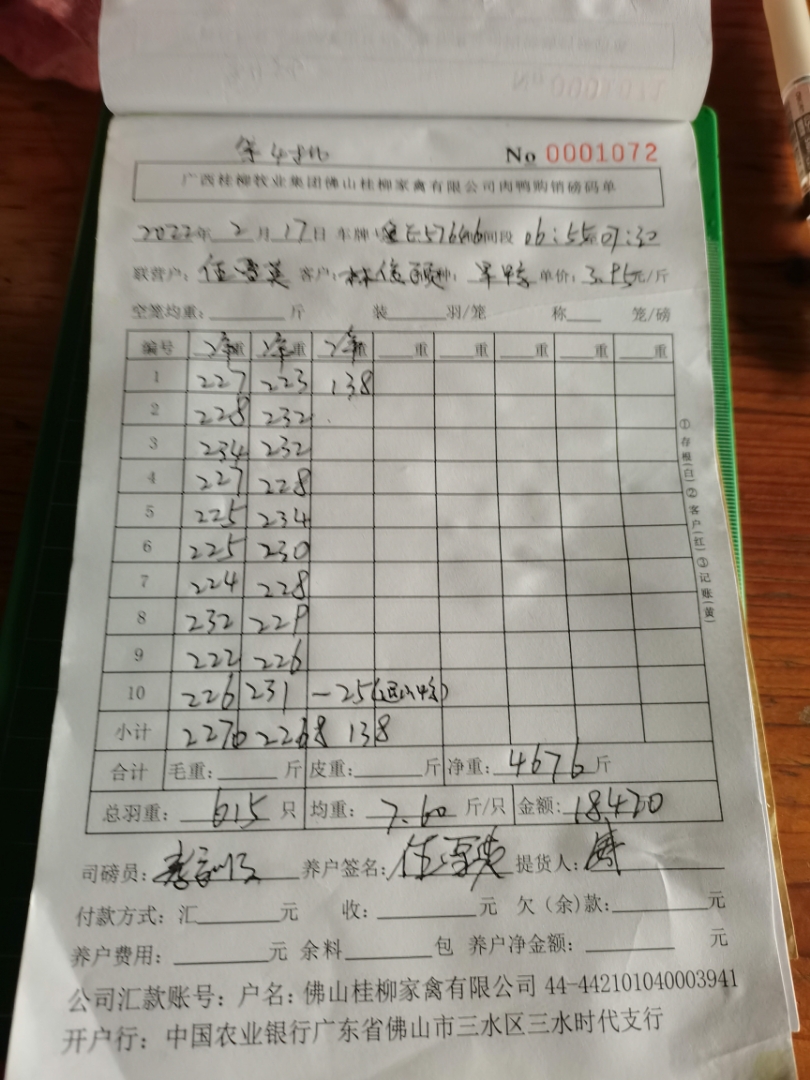 No 0001072
广西桂柳牧业集团佛山桂柳家禽有限公司肉鸭购销磅码单
2022年 2月 17日 车牌: 间段 06:55至07:30
联营户: 伍雪英 客户: 林俊 种: 单价: 3.95元/斤
空笼均重: 斤 装 羽/笼 称 笼/磅
编号 净重 净重 净重 重 重 重 重 重
1 227 223 138
2 228 232
3 234 232
4 227 228
5 225 234
6 225 230
7 224 228
8 232 229
9 222 226
10 226 231 -25
小计 2270 2268 138
合计 毛重: 斤 皮重: 斤 净重: 4676斤
总羽重: 615 只 均重: 7.60 斤/只 金额: 18470
司磅员: 养户签名: 伍雪英 提货人:
付款方式: 汇 元 收: 元 欠(余)款: 元
养户费用: 元 余料 包 养户净金额: 元
公司汇款账号: 户名: 佛山桂柳家禽有限公司 44-442101040003941
开户行: 中国农业银行广东省佛山市三水区三水时代支行
①存根(白)②客户(红)③记账(黄)